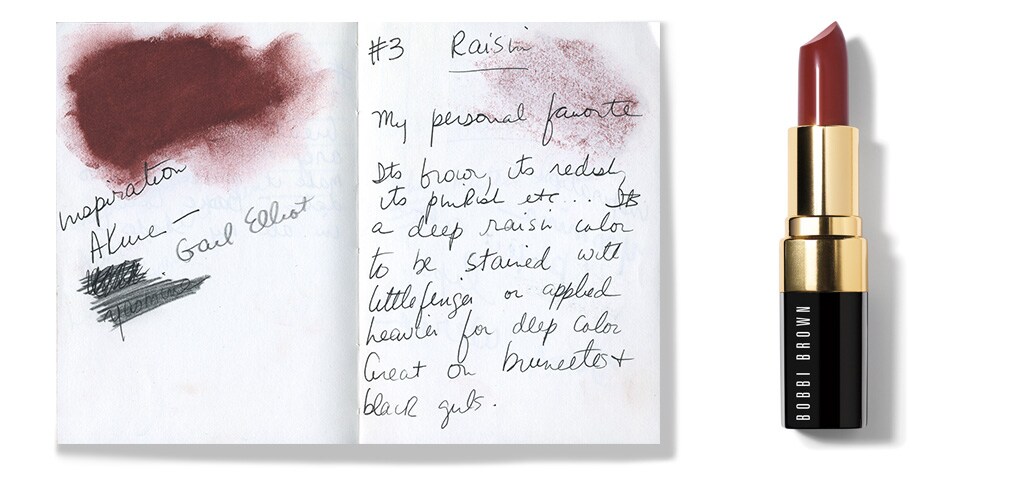 Inspiration
Akure —
Gail Elliot
#3 Raisin
My personal favorite
Its brown, its redish,
its pinkish etc... Its
a deep raisin color
to be stained with
little finger or applied
heavier for deep color
Great on brunettes +
black girls.
BOBBI BROWN